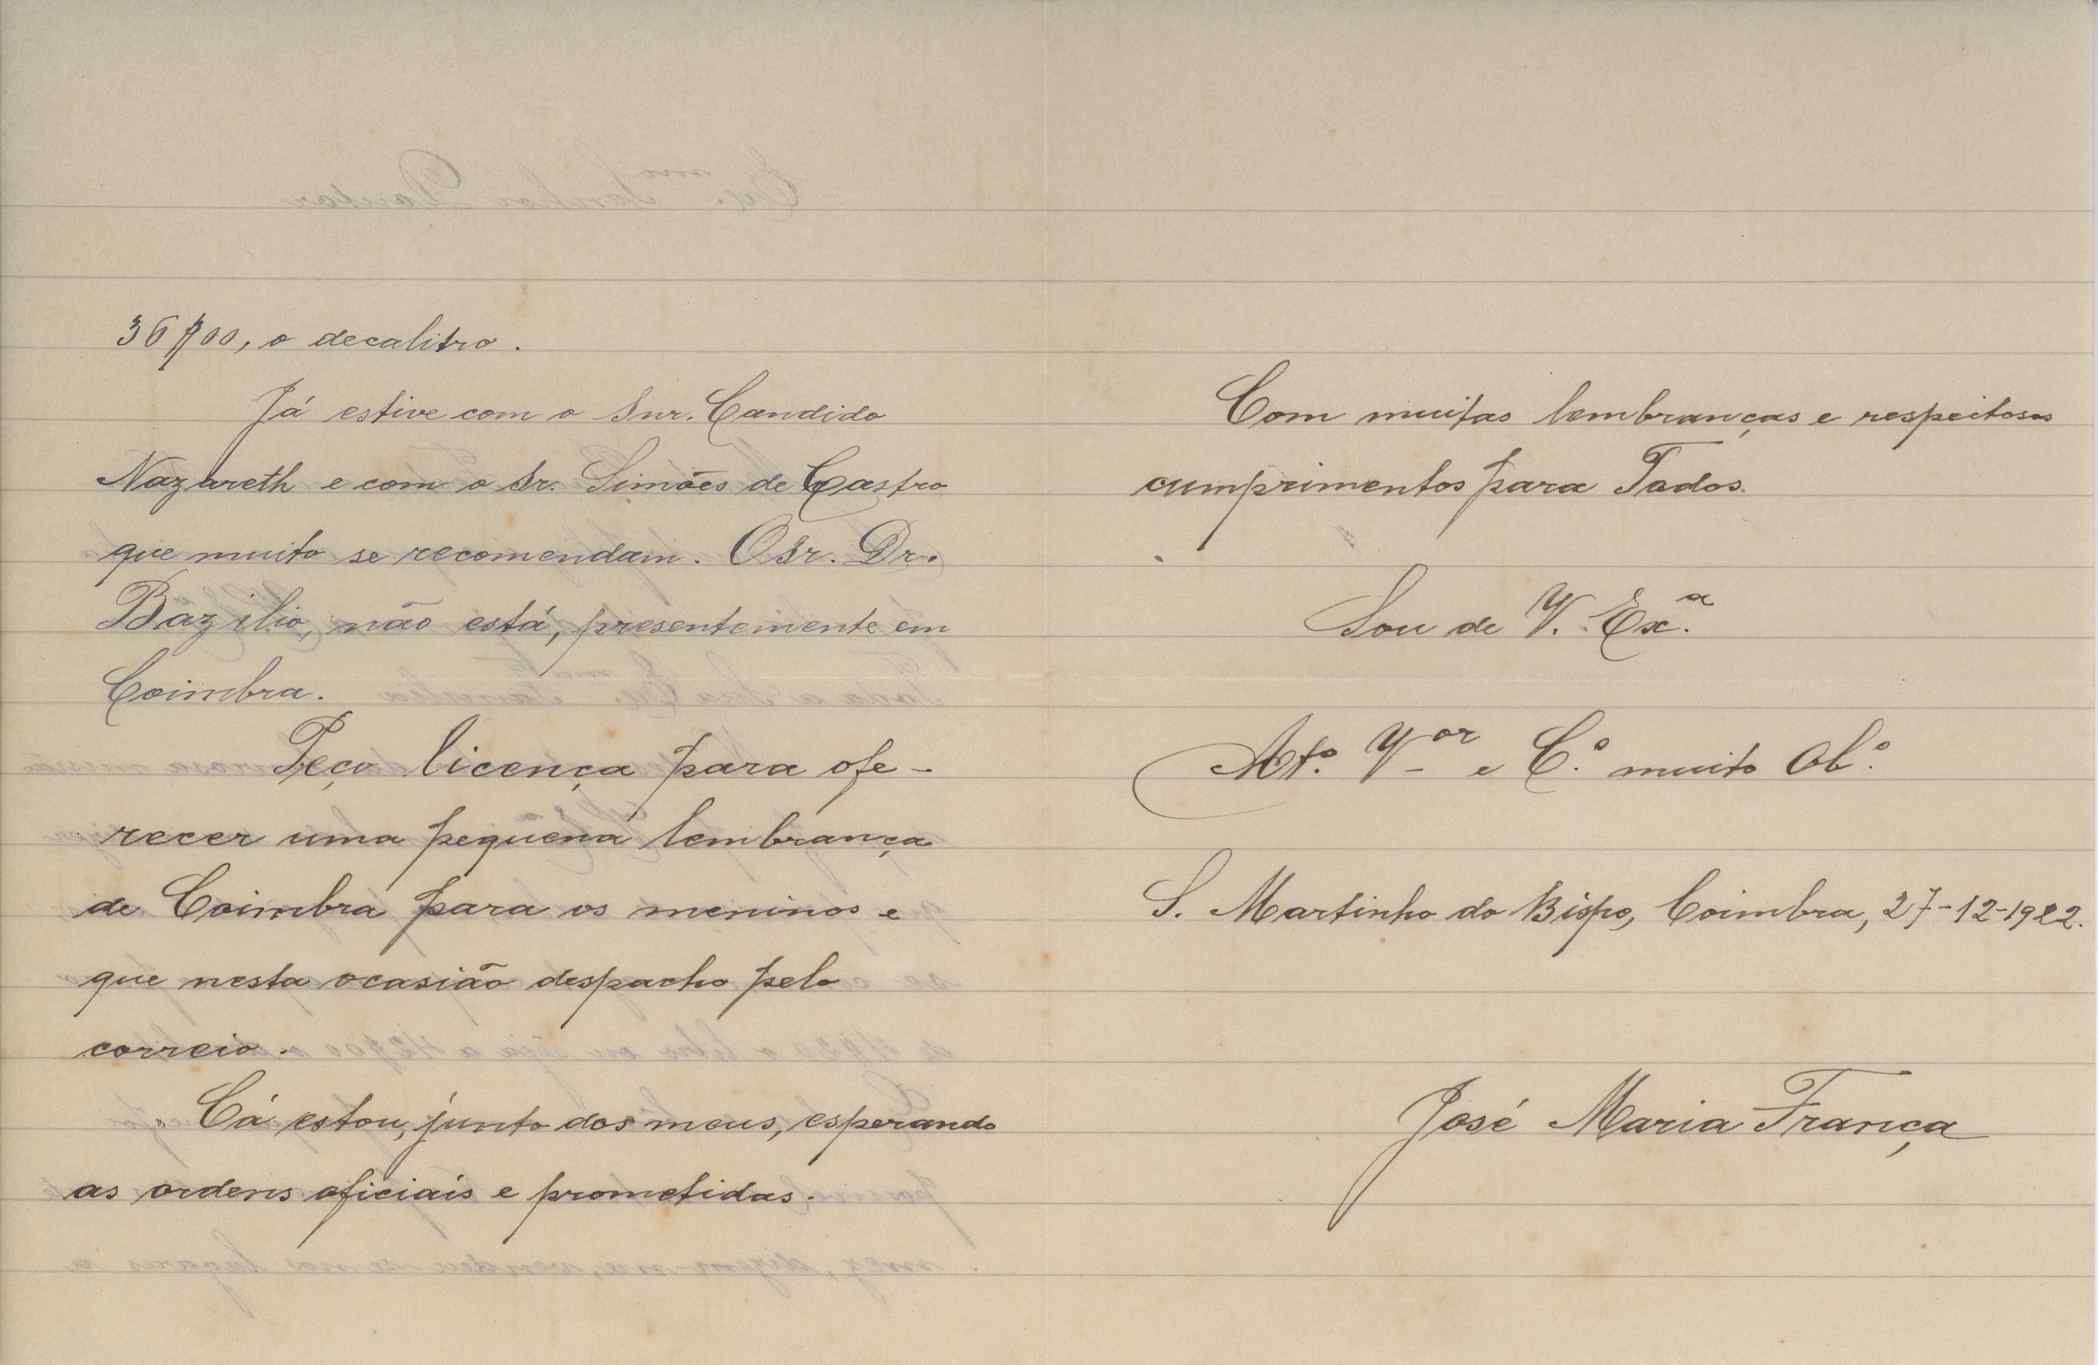 36$00, o decalitro.
Já estive com o Snr. Candido
Nazareth e com o Sr. Simões de Castro
que muito se recomendam. O Sr. Dr.
Bazilio, não está, presentemente em
Coimbra.
Peço licença para ofe-
recer uma pequena lembrança
de Coimbra para os meninos e
que nesta ocasião despacho pelo
correio.
Cá estou, junto dos meus, esperando
as ordens oficiais e prometidas.
Com muitas lembranças e respeitosos
cumprimentos para Todos.
Sou de V. Ex.ª
At.º V.or e C.º muito Ob.º
S. Martinho do Bispo, Coimbra, 27-12-1922.
José Maria França